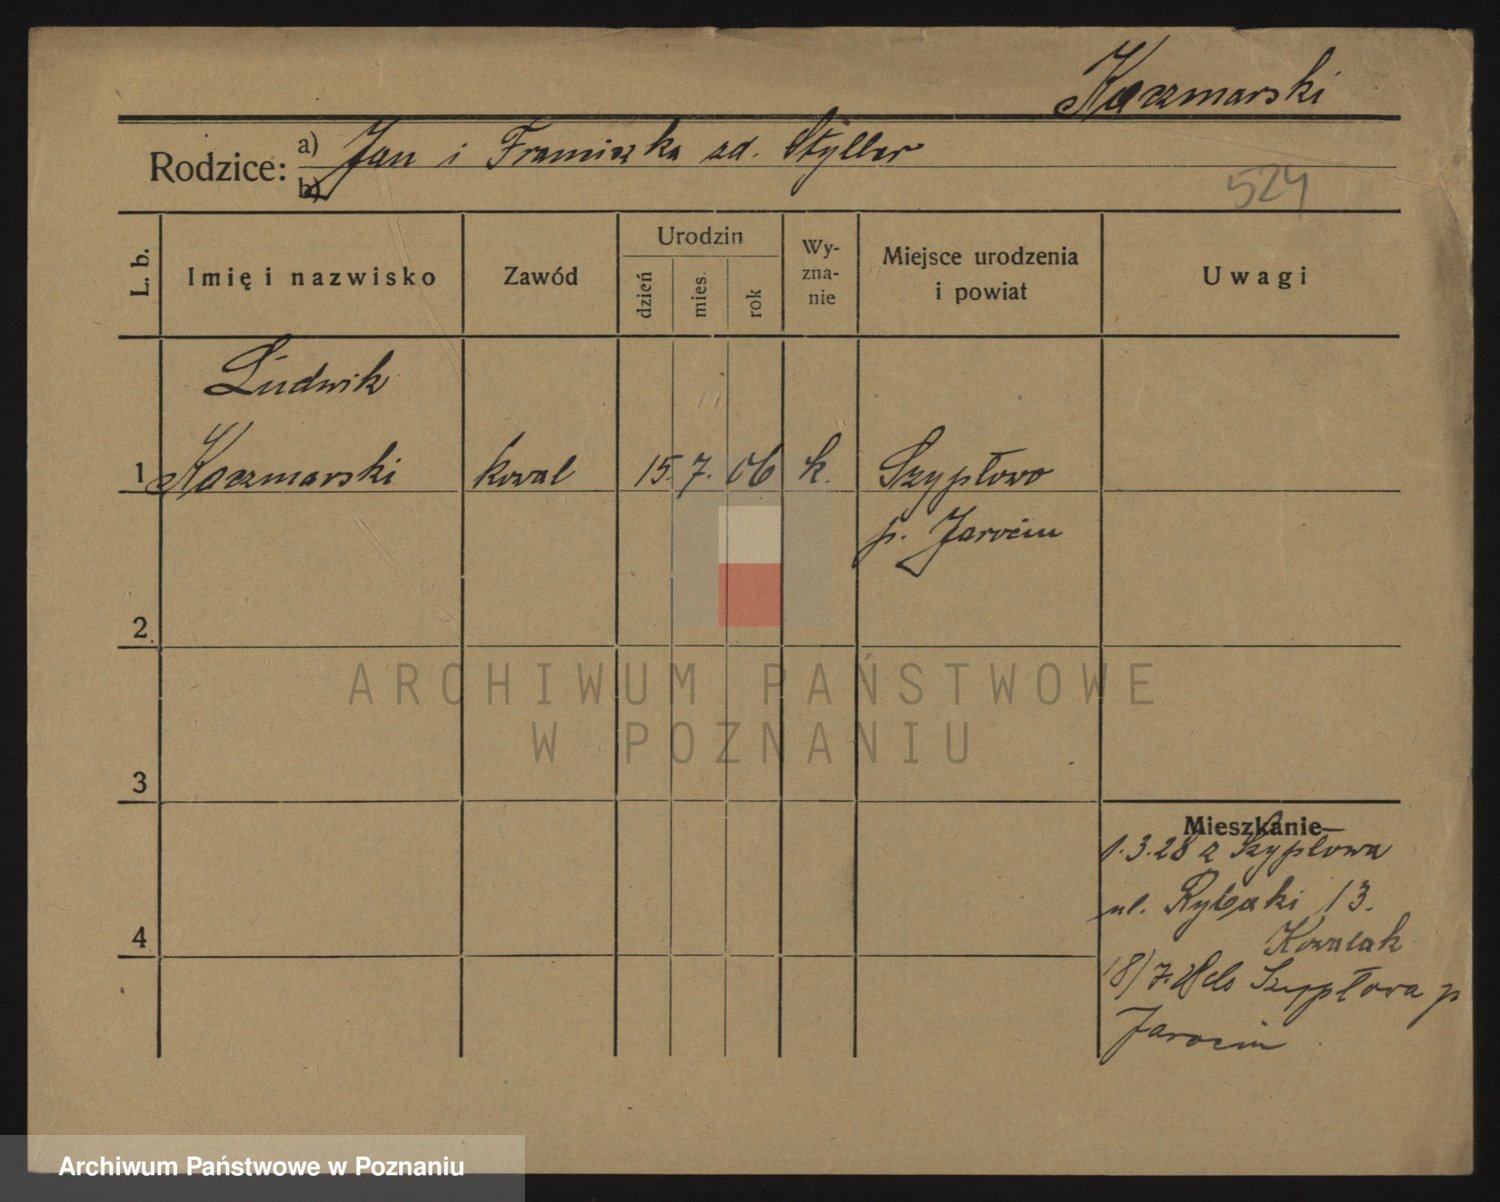 Kaczmarski
Rodzice: a) Jan i Franciszka zd. Styller
b)
524
L. b.
Imię i nazwisko
Zawód
Urodzin
dzień
mies.
rok
Wy-
zna-
nie
Miejsce urodzenia
i powiat
Uwagi
Ludwik
1 Kaczmarski kowal 15. 7. 06 k. Szypłowo
p. Jarocin
2
3
4
Mieszkanie
1.3.28 z Szypłowa
ul. Rybaki 13.
Kowalak
18/7.28 do Szypłowa p
Jarocin
ARCHIWUM PAŃSTWOWE
W POZNANIU
Archiwum Państwowe w Poznaniu